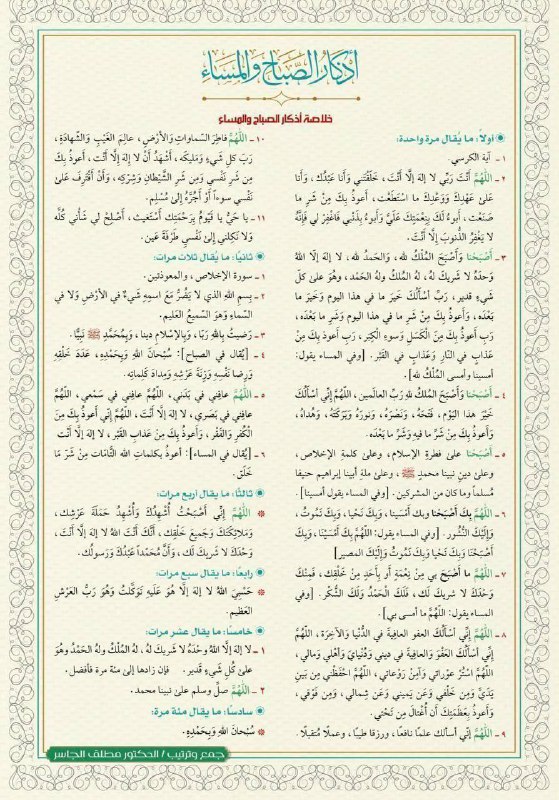 أذكار الصباح والمساء
خلاصة أذكار الصباح والمساء
أولاً: ما يُقال مرة واحدة:
١ - آية الكرسي
٢ - اللَّهُمَّ أَنْتَ رَبِّي لا إلهَ إلَّا أَنْتَ، خَلَقْتَني وأنا عَبْدُكَ، وأنا
عَلىٰ عَهْدِكَ وَوَعْدِكَ ما اسْتَطَعْت، أعوذُ بِكَ مِنْ شَرِ ما
صَنَعْت، أبوءُ لَكَ بِنِعْمَتِكَ عَلَيَّ وَأَبوءُ بذَنْبي فَاغْفِرْ لي فَإِنَّهُ
لا يَغْفِرُ الذُّنوبَ إِلَّا أَنْتَ.
٣ - أَصْبَحْنا وَأَصْبَحَ المُلْكُ للهِ، والحَمدُ لله، لا إلهَ إلَّا اللهُ
وَحدَهُ لا شَريكَ لهُ، لهُ المُلكُ ولهُ الحَمْد، وهوَ على كلّ
شَيءٍ قدير، رَبِّ أسْأَلُكَ خَيرَ ما في هذا اليوم وَخَيرَ ما
بَعْدَه، وَأَعوذُ بِكَ مِنْ شَرِ ما في هذا اليوم وَشَرِ ما بَعْدَه،
رَبِّ أعوذُ بِكَ مِنَ الْكَسَلِ وَسوءِ الْكِبَر، رَبِّ أعوذُ بِكَ مِنْ
عَذابٍ في النّارِ وَعَذابٍ في القَبْر. [وفي المساء يقول:
أمسينا وأمسى المُلْكُ لله].
٤ - أَصْبَحْنا وَأَصْبَحَ المُلكُ للهِ رَبِّ العالَمين، اللهُمَّ إنِّي أسْأَلُكَ
خَيْرَ هذا اليَوْم، فَتْحَهُ، وَنَصْرَهُ، وَنورَهُ وَبَرَكَتَهُ، وَهُداهُ،
وَأعوذُ بِكَ مِنْ شَرِّ ما فيهِ وَشَرِّ ما بَعْدَه.
٥ - أَصْبَحْنا علىٰ فطرةِ الإسلام، وعلىٰ كلمةِ الإخلاص،
وعلىٰ دينِ نبينا محمدٍ ﷺ، وعلىٰ ملةِ أبينا إبراهيم حنيفا
مُسلماً وما كان من المشركين. [وفي المساء يقول أمسينا].
٦ - اللَّهُمَّ بِكَ أَصْبَحْنا وبك أمْسَينا، وَبِكَ نَحْيا، وَبِكَ نَمُوتُ،
وَإِلَيْكَ النُّشُور. [وفي المساء يقول: اللَّهُمَّ بِكَ أَمْسَيْنا، وَبِكَ
أَصْبَحْنَا وَبِكَ نَحْيا وَبِكَ نَمُوتُ وَإِلَيْكَ المصير]
٧ - اللَّهُمَّ ما أَصْبَحَ بي مِنْ نِعْمَةٍ أو بِأَحَدٍ مِنْ خَلْقِك، فَمِنْكَ
وَحْدَكَ لا شريكَ لك، فَلَكَ الْحَمْدُ وَلَكَ الشُّكْر. [وفي
المساء يقول: اللَّهُمَّ ما أمسى بي].
٨ - اللَّهُمَّ إِنِّي أَسْأَلُكَ العفو العافِيةَ في الدُّنْيا وَالآخِرَة، اللَّهُمَّ
إِنِّي أسأَلُكَ العَفْوَ وَالعافِيةَ في ديني وَدُنْيايَ وَأهْلي ومَالي،
اللَّهُمَّ اسْتُرْ عوْراتي وَآمِنْ رَوْعاتي، اللَّهُمَّ احْفَظْني مِن بَينِ
يَدَيَّ وَمِن خَلْفي وَعَن يَميني وَعَن شِمالي، وَمِن فَوْقي،
وَأعوذُ بِعَظَمَتِكَ أَن أُغْتالَ مِن تَحْتي.
٩ - اللَّهُمَّ إِنّي أسألك علمًا نافعًا، ورزقا طيبا، وعملًا مُتقبلًا.
١٠ - اللَّهُمَّ فاطِرَ السّماواتِ وَالأَرْضِ، عالِمَ الغَيْبِ وَالشَّهادَةِ،
رَبَّ كلِ شَيءٍ وَمَليكَه، أَشْهَدُ أَنْ لا إلهَ إلَّا أَنْت، أعوذُ بِكَ
مِن شَرِ نَفْسي وَمِن شَرِ الشَّيْطانِ وَشِرْكِه، وَأَنْ أَقْتَرِفَ عَلىٰ
نَفْسي سوءاً أَوْ أَجُرَّهُ إلىٰ مُسْلِم.
١١ - يا حَيُّ يا قَيّومُ بِرَحْمَتِكَ أَسْتَغيث، أَصْلِحْ لي شَأني كُلَّه
ولا تَكِلني إلىٰ نَفْسي طَرْفَةَ عَين.
ثانيًا: ما يُقال ثلاث مرات:
١ - سورة الإخلاص، والمعوذتين.
٢ - بِسمِ اللهِ الذي لا يَضُرُّ مَعَ اسمِهِ شَيءٌ في الأرْضِ وَلا في
السّماءِ وَهوَ السّميعُ العَليم.
٣ - رَضيتُ باللهِ رَبًا، وَبالإسْلامِ دينا، وبِمُحَمَّدٍ ﷺ نَبيًّا.
٤ - [يُقال في الصباح]: سُبْحانَ اللهِ وَبِحَمْدِهِ، عَدَدَ خَلْقِهِ
وَرِضا نَفْسِهِ وَزِنَةَ عَرْشِهِ وَمِدادَ كَلِماتِهِ.
٥ - اللَّهُمَّ عافِني في بَدَني، اللَّهُمَّ عافِني في سَمْعي، اللَّهُمَّ
عافِني في بَصَري، لا إلهَ إلَّا أَنْتَ، اللَّهُمَّ إِنِّي أَعوذُ بِكَ مِنَ
الْكُفْرِ وَالْفَقْر، وَأعوذُ بِكَ مِنْ عَذابِ القَبْر، لا إلهَ إلَّا أَنْت
٦ - [يُقال في المساء]: أعوذُ بكلماتِ الله التَّامَات مِنْ شَرّ مَا
خَلَق.
ثالثًا: ما يقال أربع مرات:
اللَّهُمَّ إِنِّي أَصْبَحْتُ أُشْهِدُكَ وَأُشْهِدُ حَمَلَةَ عَرْشِك،
وَمَلائِكَتَكَ وَجَميعَ خَلْقِك، أَنَّكَ أَنْتَ اللهُ لا إلهَ إلَّا أَنْتَ،
وَحْدَكَ لا شَريكَ لَك، وَأَنَّ مُحَمَداً عَبْدُكَ وَرَسولُك.
رابعًا: ما يقال سبع مرات:
حَسْبِيَ اللهُ لا إلهَ إلَّا هُوَ عَلَيهِ تَوَكَّلتُ وَهُوَ رَبُّ العَرْشِ
العَظيم.
خامسًا: ما يقال عشر مرات:
١ - لا إلهَ إلَّا اللهُ وحْدَهُ لا شَريكَ لهُ، لهُ المُلْكُ ولهُ الحَمْدُ وهُوَ
علىٰ كُلّ شَيءٍ قَدير. فإن زادها إلىٰ مئة مرة فأفضل.
٢ - اللَّهُمَّ صلِّ وسلم علىٰ نبينا محمد.
سادسًا: ما يقال مئة مرة:
سُبْحانَ اللهِ وَبِحَمْدِهِ.
جمع وترتيب / الدكتور مطلق الجاسر